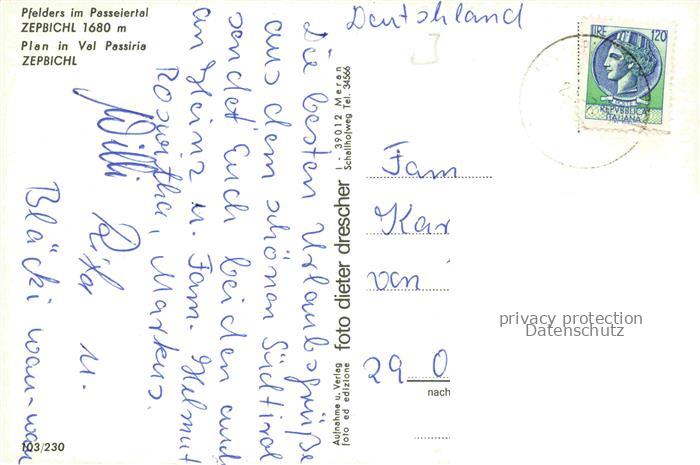 Pfelders im Passeiertal
ZEPBICHL 1680 m
Plan in Val Passiria
ZEPBICHL
Die besten Urlaubsgrüße
aus dem schönen Südtirol
sendet Euch beiden auch
an Heinz u. Fam. Helmut
Roswitha, Markus.
Willi
Rita u.
Bläcki wau-wau
103/230
Aufnahme u. Verlag
foto ed edizione
foto dieter drescher
I - 39012 Meran
Schallhofweg Tel. 34566
Deutschland
LIRE 120
REPVBBLICA
ITALIANA
Fam
Kar
van
29 O
nach
privacy protection
Datenschutz